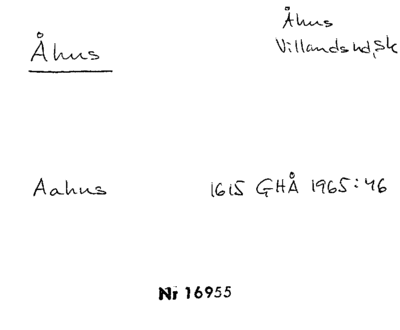 Åhus
Åhus
Villands hd, Sk
Aahus 1615 GHÅ 1965:46
Nr 16955